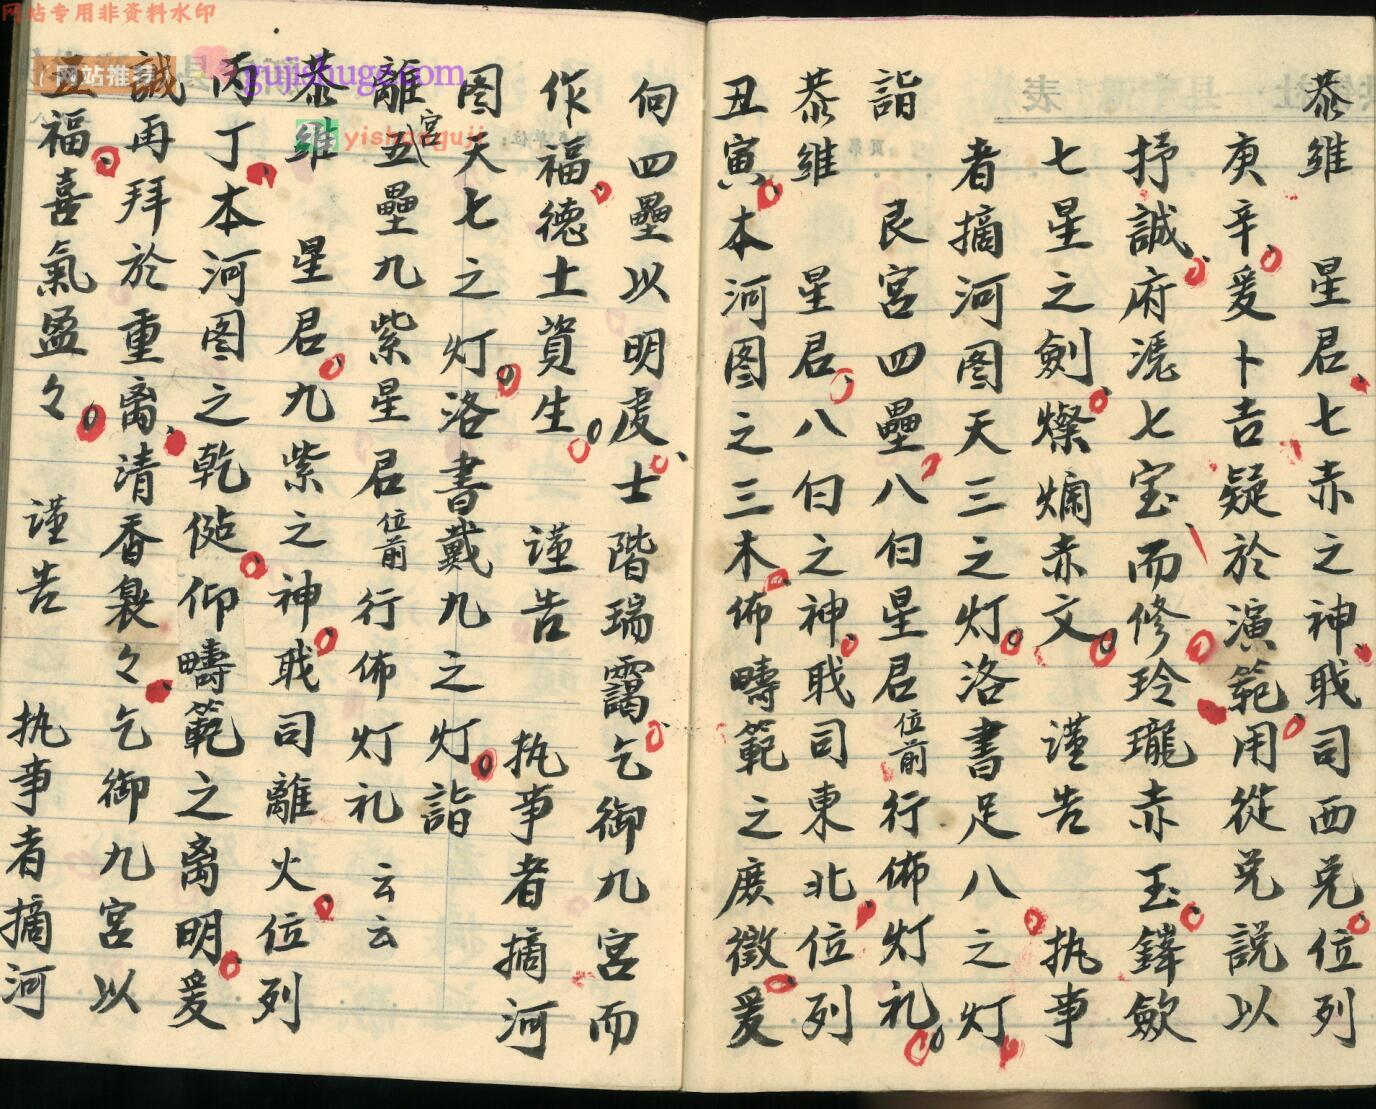 恭維　星君七赤之神戝司西兑位列
庚辛爰卜吉疑於演範用從兑説以
抒誠府濹七宝而修玲瓏赤玉鐸歛
七星之劍燦爛赤文　謹告　执事
者摘河图天三之灯洛書足八之灯
詣　艮宮四壘八白星君位前行佈灯礼
恭維　星君八白之神戝司東北位列
丑寅本河图之三木佈疇範之庻徵爰
伺四壘以明虔士階瑞靄乞御九宮而
作福德土資生　謹告　执事者摘河
图天七之灯洛書戴九之灯詣
離宮五壘九紫星君位前行佈灯礼云云
恭維　星君九紫之神戝司離火位列
丙丁本河图之乾㑩仰疇範之离明爰
誠再拜於重离清香裊々乞御九宮以
五福喜氣盈々　谨告　执事者摘河
网站专用非资料水印
网站推荐
gujishuge.com
yishanguji